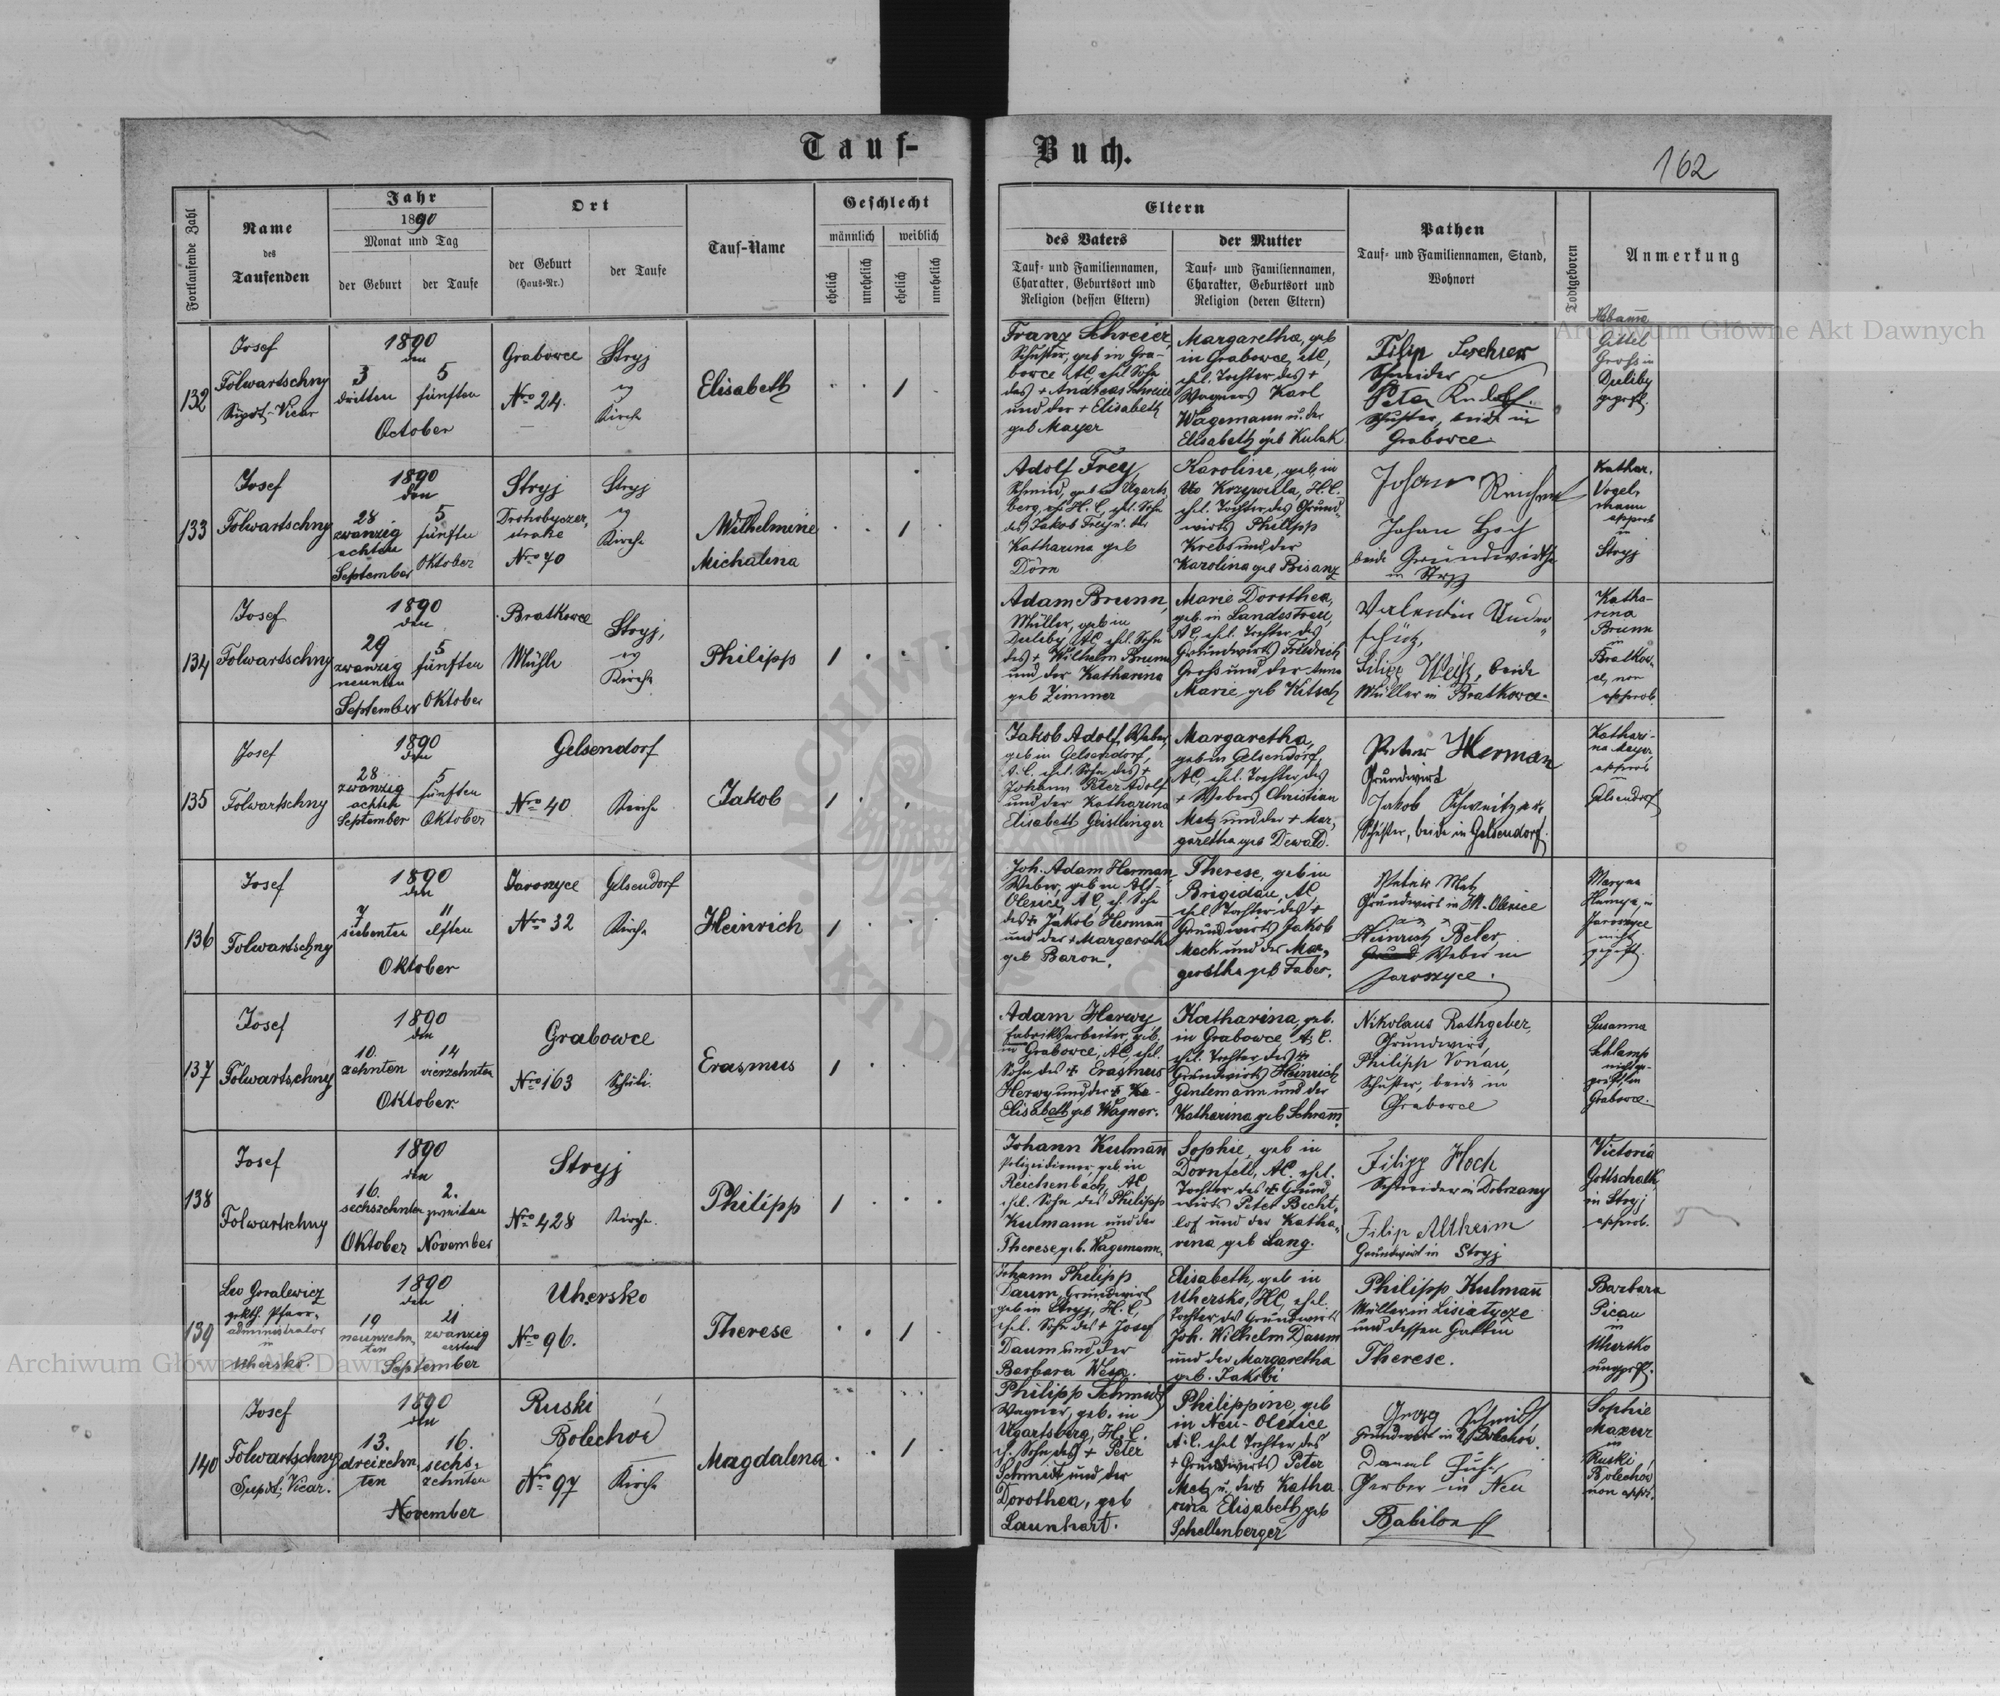 Tauf-
Buch.
162
Fortlaufende Zahl
Name
des
Taufenden
Jahr
1890
Monat und Tag
der Geburt
der Taufe
Ort
der Geburt
(Haus-Nr.)
der Taufe
Tauf-Name
Geschlecht
männlich
weiblich
ehelich
unehelich
ehelich
unehelich
Eltern
des Vaters
Tauf- und Familiennamen,
Charakter, Geburtsort und
Religion (dessen Eltern)
der Mutter
Tauf- und Familiennamen,
Charakter, Geburtsort und
Religion (deren Eltern)
Pathen
Tauf- und Familiennamen, Stand,
Wohnort
Todtgeboren
Anmerkung
132
Josef
Folwartschny
Supdt. Vicar
1890
den
3
dritten
5
fünften
October
Grabowce
Nro 24.
Stryj
Kirche
Elisabeth
1
Franz Schreier,
Schuster, geb in Gra-
bowce AC, ehel Sohn
des + Andreas Schreier
und der + Elisabeth
geb Mayer
Margaretha, geb
in Grabowce, AC,
ehl. Tochter des +
Wagners Karl
Wagemann u. der
Elisabeth geb Kulak
Filip
Schneider
Peter Rudolf
Schuster, beide in
Grabowce
Gittel
in
Duliby
133
Josef
Folwartschny
1890
den
28
zwanzig
achten
September
5
fünften
Oktober
Stryj
Drohobyczer,
straße
Nro 70
Stryj
Kirche
Wilhelmine
Michalina
1
Adolf Frey,
Schmid, geb in Ugarts
berg, H. C. ehl. Sohn
des Jakob Frey u. der
Katharina geb
Dörn
Karoline, geb in
Krzywulla, H. C.
ehl. Tochter des Grund-
wirts Philipp
Krebs und der
Karolina geb Bisanz
Johan
Johan Hoch
beide Grundwirthe
in Stryj
Kathar.
Vogel,
mann
approb
in
Stryj
134
Josef
Folwartschny
1890
den
29
zwanzig
neunten
September
5
fünften
Oktober
Bratkowce
Mühle
Stryj,
Kirche
Philipp
1
Adam Brunn,
Müller, geb in
Duliby, AC, ehl. Sohn
des + Wilhelm Brunn
und der Katharina
geb Zimmer
Marie Dorothea,
geb in Landestreu,
AC, ehel. Tochter des
Grundwirts Friedrich
Groß und der Anna
Marie geb Kitsch
Valentin
Filipp Weiß, beide
Müller in Bratkowce
Katha-
rina
Brunn
in
Bratkow-
ce, non
approb.
135
Josef
Folwartschny
1890
den
28
zwanzig
achten
September
5
fünften
Oktober
Gelsendorf
Nro 40
Kirche
Jakob
1
Jakob Adolf, Weber,
geb in Gelsendorf,
A. C. ehel. Sohn des +
Johann Peter Adolf
und der Katharina
Elisabeth Geistlinger
Margaretha,
geb in Gelsendorf,
AC, ehel. Tochter des
+ Webers Christian
Metz und der + Mar,
garetha geb Dewald.
Peter Herman
Grundwirt
Jakob Schweitzer
Schuster, beide in Gelsendorf.
Kathari-
na Mayer,
approb
in
Gelsendorf
136
Josef
Folwartschny
1890
den
7
siebenten
11
elften
Oktober
Jaroszyce
Nro 32
Gelsendorf
Kirche
Heinrich
1
Joh. Adam Herman,
Weber, geb in Alt-
Olexice, A. C, eh. Sohn
des + Jakob Hermañ
und der + Margaretha
geb Baron.
Therese, geb in
Brigidau, AC
ehel Tochter des +
Grundwirts Jakob
Mock und der Mar,
garetha geb Faber.
Peter Metz
Grundwirt in Olexice
Heinrich Beler
Weber in
Jaroszyce.
Jaroszyce
nicht
geprüft.
137
Josef
Folwartschny
1890
den
10.
zehnten
14
vierzehnten
Oktober.
Grabowce
Nro 163
Schule.
Erasmus
1
Adam Herwy
Fabriksarbeiter, geb.
in Grabowce, AC, ehel.
Sohn des + Erasmus
Herwy und der +
Elisabeth geb Wagner.
Katharina, geb
in Grabowce, A. C.
ehel. Tochter des +
Grundwirts Heinrich
Gintemann und der
Katharina geb Schramm.
Nikolaus Rathgeber,
Grundwirt,
Philipp Vonau,
Schuster, beide in
Grabowce
Susanna
Schlamp
nicht ge-
prüft, in
Grabowce.
138
Josef
Folwartschny
1890
den
16.
sechszehnten
2.
zweiten
Oktober
November
Stryj
Nro 428
Kirche.
Philipp
1
Johann Kulmañ
Polizeidiener, geb in
Reichenbach, AC
ehel. Sohn des Philipp
Kulmann und der
Therese geb. Wagemann.
Sophie, geb in
Dornfeld, AC. ehel.
Tochter des + Grund
wirts Peter Becht,
lof und der Katha,
rena geb Lang.
Filipp Hoch
Schneider in Dobrzany
Filip Altheim
Grundwirt in Stryj
Victoria
Gottschalk,
in Stryj
approb.
139
Leo Goralewicz
grkth. Pfarr-
administrator
in
Uhersko
1890
den
19
neunzehn,
ten
21
zwanzig
ersten
September
Uhersko
Nro 96.
Therese
1
Johann Philipp
Daum, Grundwirt
geb in Stryj, H. C,
ehel. Sohn des + Josef
Daum und der
Barbara Wesa.
Elisabeth, geb in
Uhersko, HC, ehel.
Tochter des Grundwirts
Joh. Wilhelm Daum
und der Margaretha
geb. Jakobi
Philipp Kulmañ
Müller in Lisiatycze
und dessen Gattin
Therese.
Barbara
Picau
in
Uhersko
ungeprft.
140
Josef
Folwartschny
Supdt. Vicar.
1890
den
13.
dreizehn,
ten
16.
sechs,
zehnten
November
Ruski
Bolechow
Nro 97
Kirche
Magdalena
1
Philipp Schmidt
Wagner, geb, in
Ugartsberg, H. C.
eh. Sohn des + Peter
Schmidt und der
Dorothea, geb
Launhart.
Philippine, geb
in Neu-Olexice
A. C. ehel Tochter des
+ Grundwirts Peter
Metz u. der + Katha
rina Elisabeth geb
Schellenberger
Georg Schmidt
Grundwirt in Bolechow.
Daniel
Gerber in Neu
Babilon
Sophie
Mazur
in
Ruski
Bolechow
non appr.
Archiwum Główne Akt Dawnych
Archiwum Główne Akt Dawnych